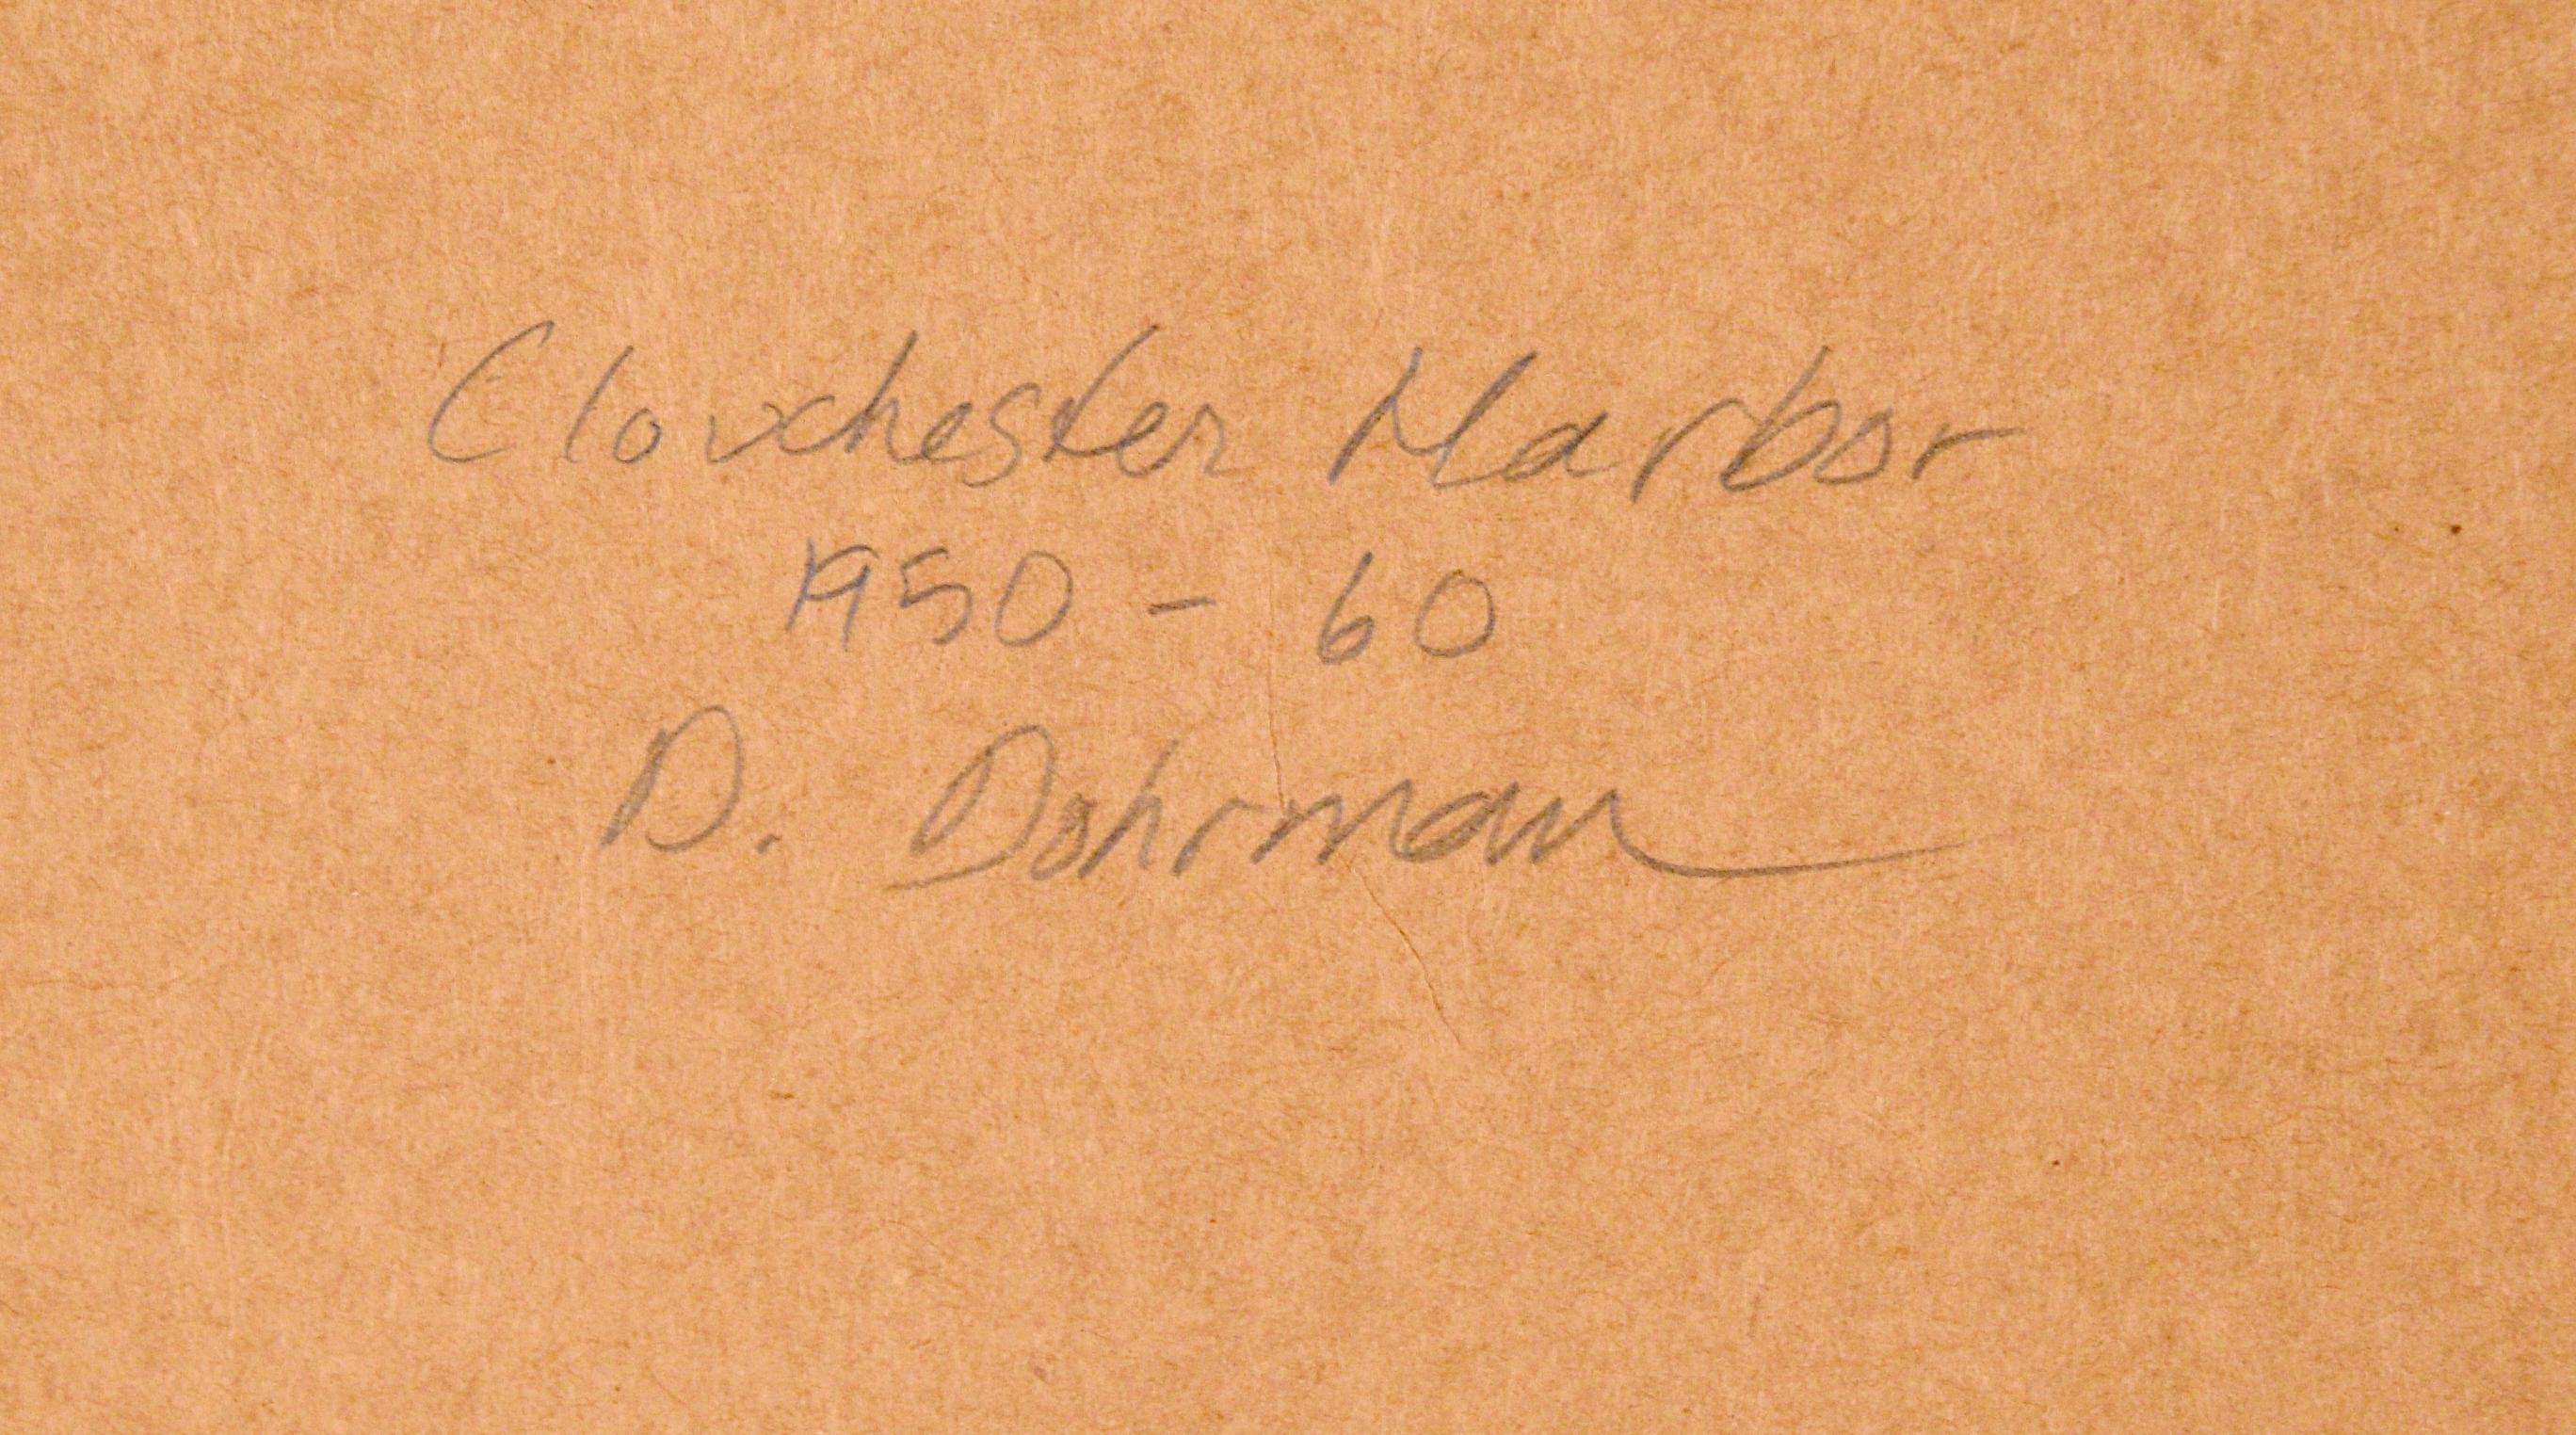 Clouchester Harbor
1950 - 60
D. Dohrman